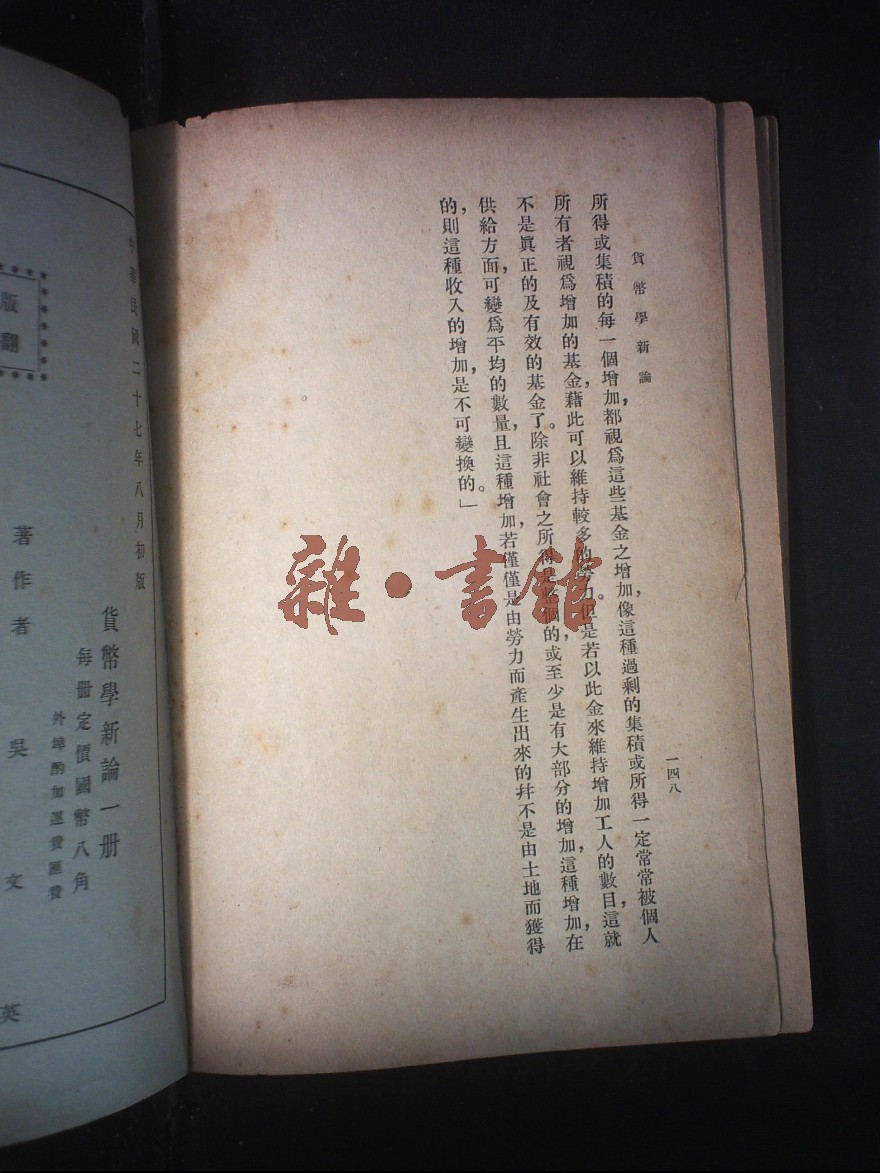 貨幣學新論
一四八
所得或集積的每一個增加，都視爲這些基金之增加，像這種過剩的集積或所得一定常常被個人
所有者視爲增加的基金，藉此可以維持較多的勞力。但是若以此金來維持增加工人的數目，這就
不是眞正的及有效的基金了。除非社會之所得是整個的，或至少是有大部分的增加，這種增加，在
供給方面，可變爲平均的數量，且這種增加，若僅僅是由勞力而產生出來的，幷不是由土地而獲得
的，則這種收入的增加，是不可變換的。」
雜·書館
中華民國二十七年八月初版
貨幣學新論一册
每册定價國幣八角
外埠酌加運費匯費
著作者 吳文英
版
翻